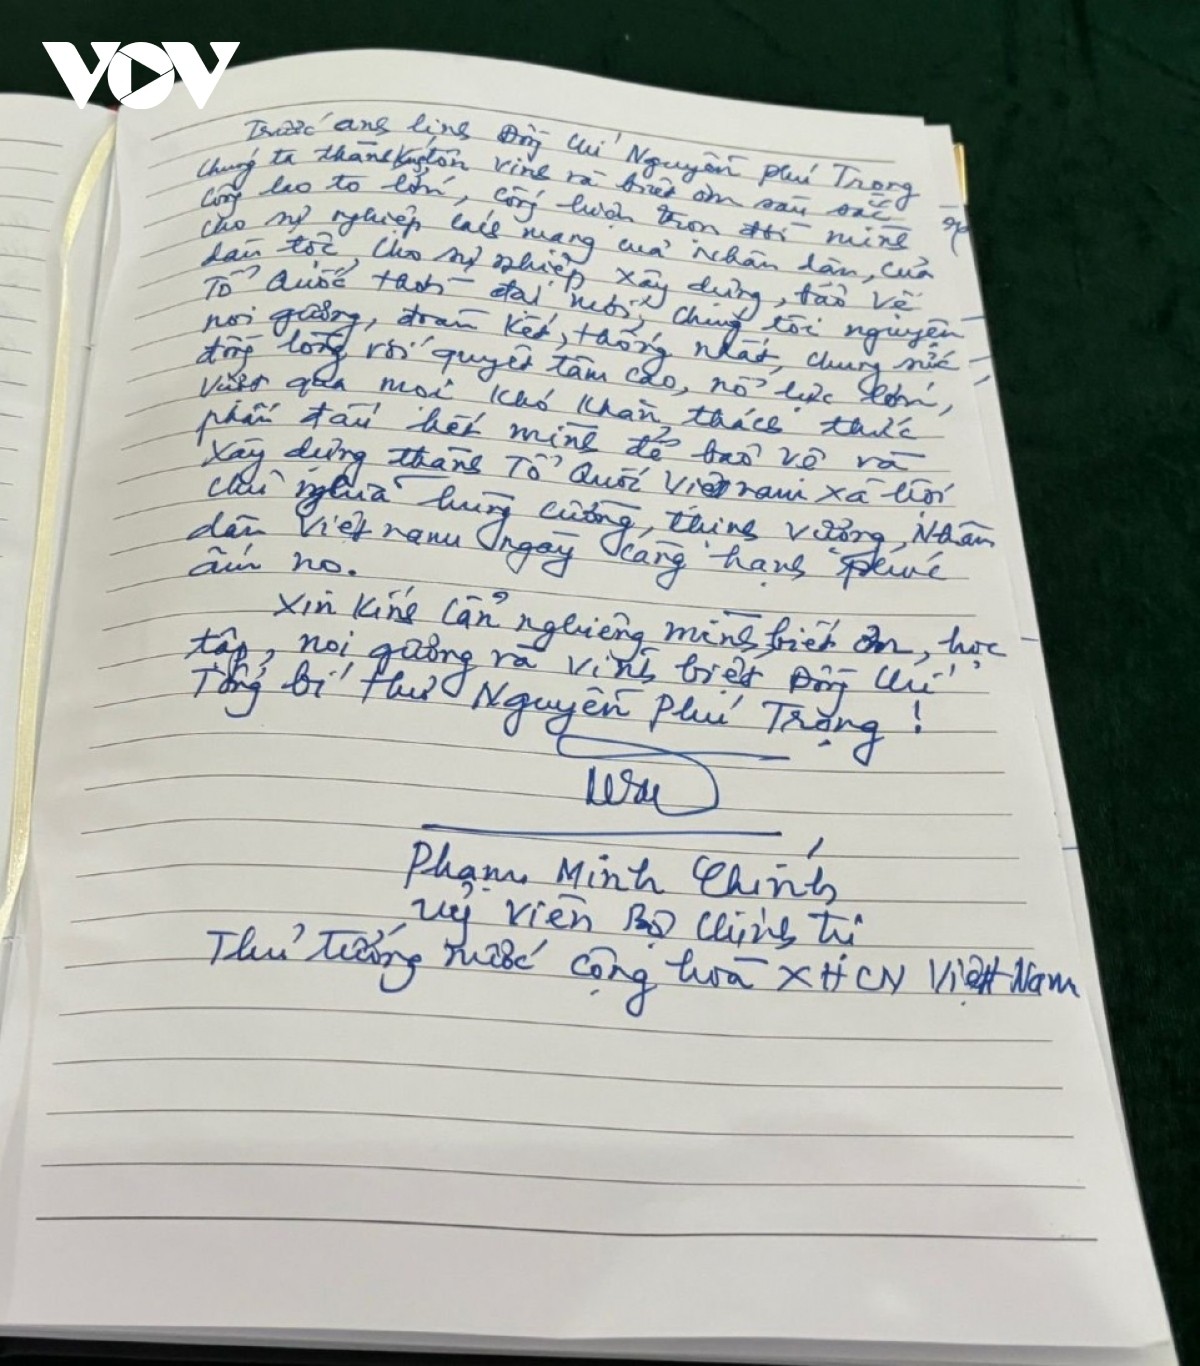 VOV
Trước anh linh Đồng chí Nguyễn Phú Trọng
chúng ta thành kính tôn vinh và biết ơn sâu sắc
công lao to lớn, cống hiến trọn đời mình
cho sự nghiệp cách mạng của Nhân dân, của
dân tộc, cho sự nghiệp xây dựng, bảo vệ
Tổ Quốc thời đại mới, chúng tôi nguyện
noi gương, đoàn kết, thống nhất, chung sức
đồng lòng với quyết tâm cao, nỗ lực lớn,
vượt qua mọi khó khăn, thách thức
phấn đấu hết mình để bảo vệ và
xây dựng thành Tổ Quốc Việt nam xã hội
chủ nghĩa hùng cường, thịnh vượng, Nhân
dân Việt nam ngày càng hạnh phúc
ấm no.
Xin kính cẩn nghiêng mình, biết ơn, học
tập, noi gương và vĩnh biệt Đồng chí
Tổng bí thư Nguyễn Phú Trọng!
Phạm Minh Chính
Uỷ viên Bộ Chính trị
Thủ tướng nước cộng hoà XHCN Việt Nam